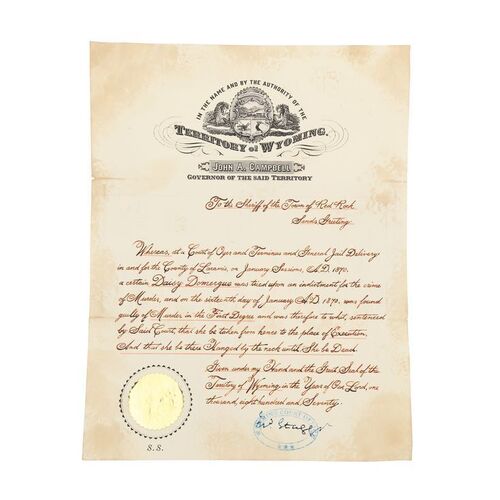 IN THE NAME AND BY THE AUTHORITY OF THE
TERRITORY of WYOMING.
JOHN A. CAMPBELL
GOVERNOR OF THE SAID TERRITORY
To the Sheriff of the Town of Red Rock
Sends Greeting
Whereas, at a Court of Oyer and Terminus and General Jail Delivery
in and for the County of Laramie, on January Sessions, A.D. 1870,
a certain Daisy Domergue was tried upon an indictment for the crime
of Murder, and on the sixteenth day of January A.D. 1870, was found
guilty of Murder in the First Degree and was therefore to whit, sentenced
by Said Court, that she be taken from hence to the place of Execution,
And that she be there Hanged by the neck until She be Dead.
Given under my Hand and the Great Seal of the
Territory of Wyoming in the Year of Our Lord, one
thousand, eight hundred and Seventy
COURT OF
S.S.